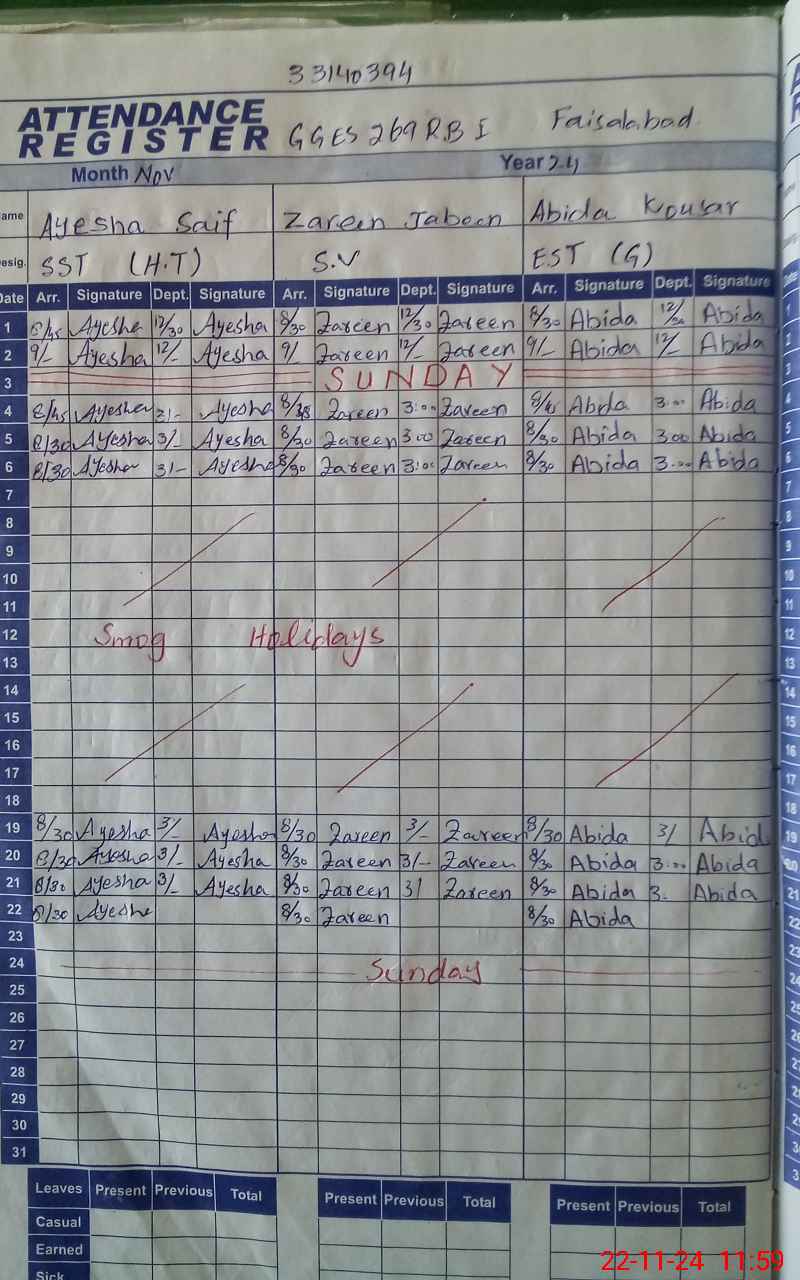 33140394
ATTENDANCE
REGISTER GGES 269 RB I Faisalabad
Month Nov Year 24
Name Ayesha Saif Zareen Jabeen Abida Kousar
Desig. SST (H.T) S.V EST (G)
Date Arr. Signature Dept. Signature Arr. Signature Dept. Signature Arr. Signature Dept. Signature
1 8/45 Ayesha 12/30 Ayesha 8/30 Zareen 12/30 Zareen 8/30 Abida 12/30 Abida 1
2 9/- Ayesha 12/- Ayesha 9/ Zareen 12/- Zareen 9/- Abida 12/- Abida 2
3 SUNDAY 3
4 8/45 Ayesha 3/- Ayesha Zareen 3:00 Zareen 8/45 Abida 3:00 Abida 4
5 8/30 Ayesha 3/- Ayesha 8/30 Zareen 3 00 Zareen 8/30 Abida 3 00 Abida 5
6 8/30 Ayesha 3/- Ayesha 8/30 Zareen 3:00 Zareen 8/30 Abida 3:00 Abida 6
7 7
8 8
9 9
10 10
11 11
12 Smog Holidays 12
13 13
14 14
15 15
16 16
17 17
18 18
19 8/30 Ayesha 3/- Ayesha 8/30 Zareen 3/- Zareen 8/30 Abida 3/ Abid 19
20 8/30 Ayesha 3/- Ayesha 8/30 Zareen 3/- Zareen 8/30 Abida 3:00 Abida 20
21 8/30 Ayesha 3/- Ayesha 8/30 Zareen 3/ Zareen 8/30 Abida 3. Abida 21
22 8/30 Ayesha 8/30 Zareen 8/30 Abida 22
23 23
24 Sunday 24
25 25
26 26
27 27
28 28
29 29
30 30
31
Leaves Present Previous Total Present Previous Total Present Previous Total
Casual
Earned
Sick
22-11-24 11:59